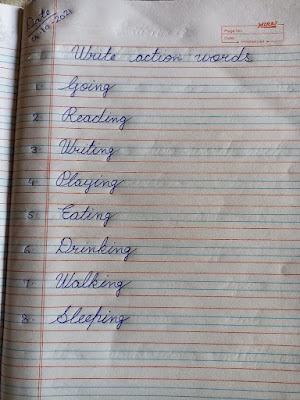 Date
Page No.
Date
Write action words
1 Going
2 Reading
3 Writing
4 Playing
5 Eating
6 Drinking
7 Walking
8 Sleeping